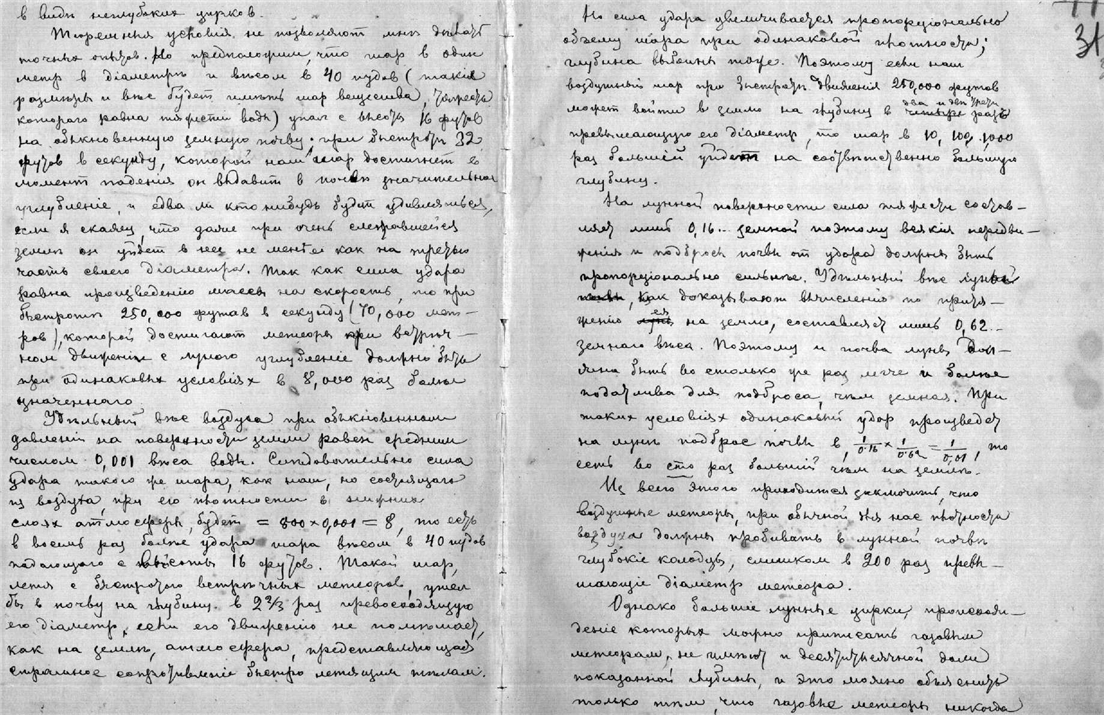 въ видѣ неглубокихъ цирковъ.
Тюремныя условія не позволяютъ мнѣ дѣлать
точныхъ опытовъ. Но предположимъ, что шаръ въ одинъ
метръ въ діаметрѣ и вѣсомъ въ 40 пудовъ (такія
размѣры и вѣсъ будетъ имѣть шаръ вещества,
котораго равна воды) упалъ съ высоты 16 футовъ
на обыкновенную земную почву; при быстротѣ 32
футовъ въ секунду, которой нашъ шаръ достигнетъ въ
моментъ паденія онъ вдавитъ въ почвѣ значительное
углубленіе, и едва ли кто нибудь будетъ удивляться,
если я скажу что даже при очень слежавшейся
землѣ онъ уйдетъ въ нее не менѣе какъ на третью
часть своего діаметра. Такъ какъ сила удара
равна произведенію массы на скорость, то при
быстротѣ 250,000 футовъ въ секунду (70,000 мет-
ровъ), которой достигаютъ метеоры при встрѣч-
номъ движеніи съ луною углубленіе должно быть
при одинаковыхъ условіяхъ въ 8,000 разъ больше
означеннаго.
Удѣльный вѣсъ воздуха при обыкновенномъ
давленіи на поверхности земли равенъ среднимъ
числомъ 0,001 вѣса воды. Слѣдовательно сила
удара такого же шара, какъ нашъ, но состоящаго
изъ воздуха, при его плотности въ нижнихъ
слояхъ атмосферы, будетъ = 800 × 0,001 = 8, то есть
въ восемь разъ болѣе удара шара вѣсомъ въ 40 пудовъ
падающаго съ высоты 16 футовъ. Такой шаръ,
летя съ быстротою встрѣчныхъ метеоровъ, ушелъ
бы въ почву на глубину въ 2 2/3 разъ превосходящую
его діаметръ, если его движенію не помѣшаетъ,
какъ на землѣ, атмосфера, представляющая
страшное сопротивленіе быстро летящимъ тѣламъ.
31
Но сила удара увеличивается пропорціонально
объему шара при одинаковой плотности;
глубина выбоины тоже. Поэтому если нашъ
воздушный шаръ при быстротѣ движенія 250,000 футовъ
можетъ войти въ землю на глубину въ два и двѣ трети раза
превышающую его діаметръ, то шаръ въ 10, 100, 1000
разъ большій уйдетъ на соотвѣтственно большую
глубину.
На лунной поверхности сила тяжести состав-
ляетъ лишь 0,16.. земной поэтому всякія передви-
женія и подбросъ почвы отъ удара должны быть
пропорціонально сильнѣе. Удѣльный вѣсъ луны
какъ доказываютъ вычисленія по притя-
женію ея на землю, составляетъ лишь 0,62..
земнаго вѣса. Поэтому и почва луны дол-
жна быть во столько же разъ легче и болѣе
податлива для подброса, чѣмъ земная. При
такихъ условіяхъ одинаковый ударъ произведетъ
на лунѣ подбросъ почвы въ 1/0,16 × 1/0,62 = 1/0,01, то
есть во сто разъ большій чѣмъ на землѣ.
Изъ всего этого приходится заключить, что
воздушные метеоры, при обычной для насъ плотности
воздуха должны пробивать въ лунной почвѣ
глубокіе колодцы, слишкомъ въ 200 разъ превы-
шающіе діаметръ метеора.
Однако большіе лунные цирки, происхож-
деніе которыхъ можно приписать газовымъ
метеорамъ, не имѣютъ и десятитысячной доли
показанной глубины, и это можно объяснить
только тѣмъ, что газовые метеоры никогда